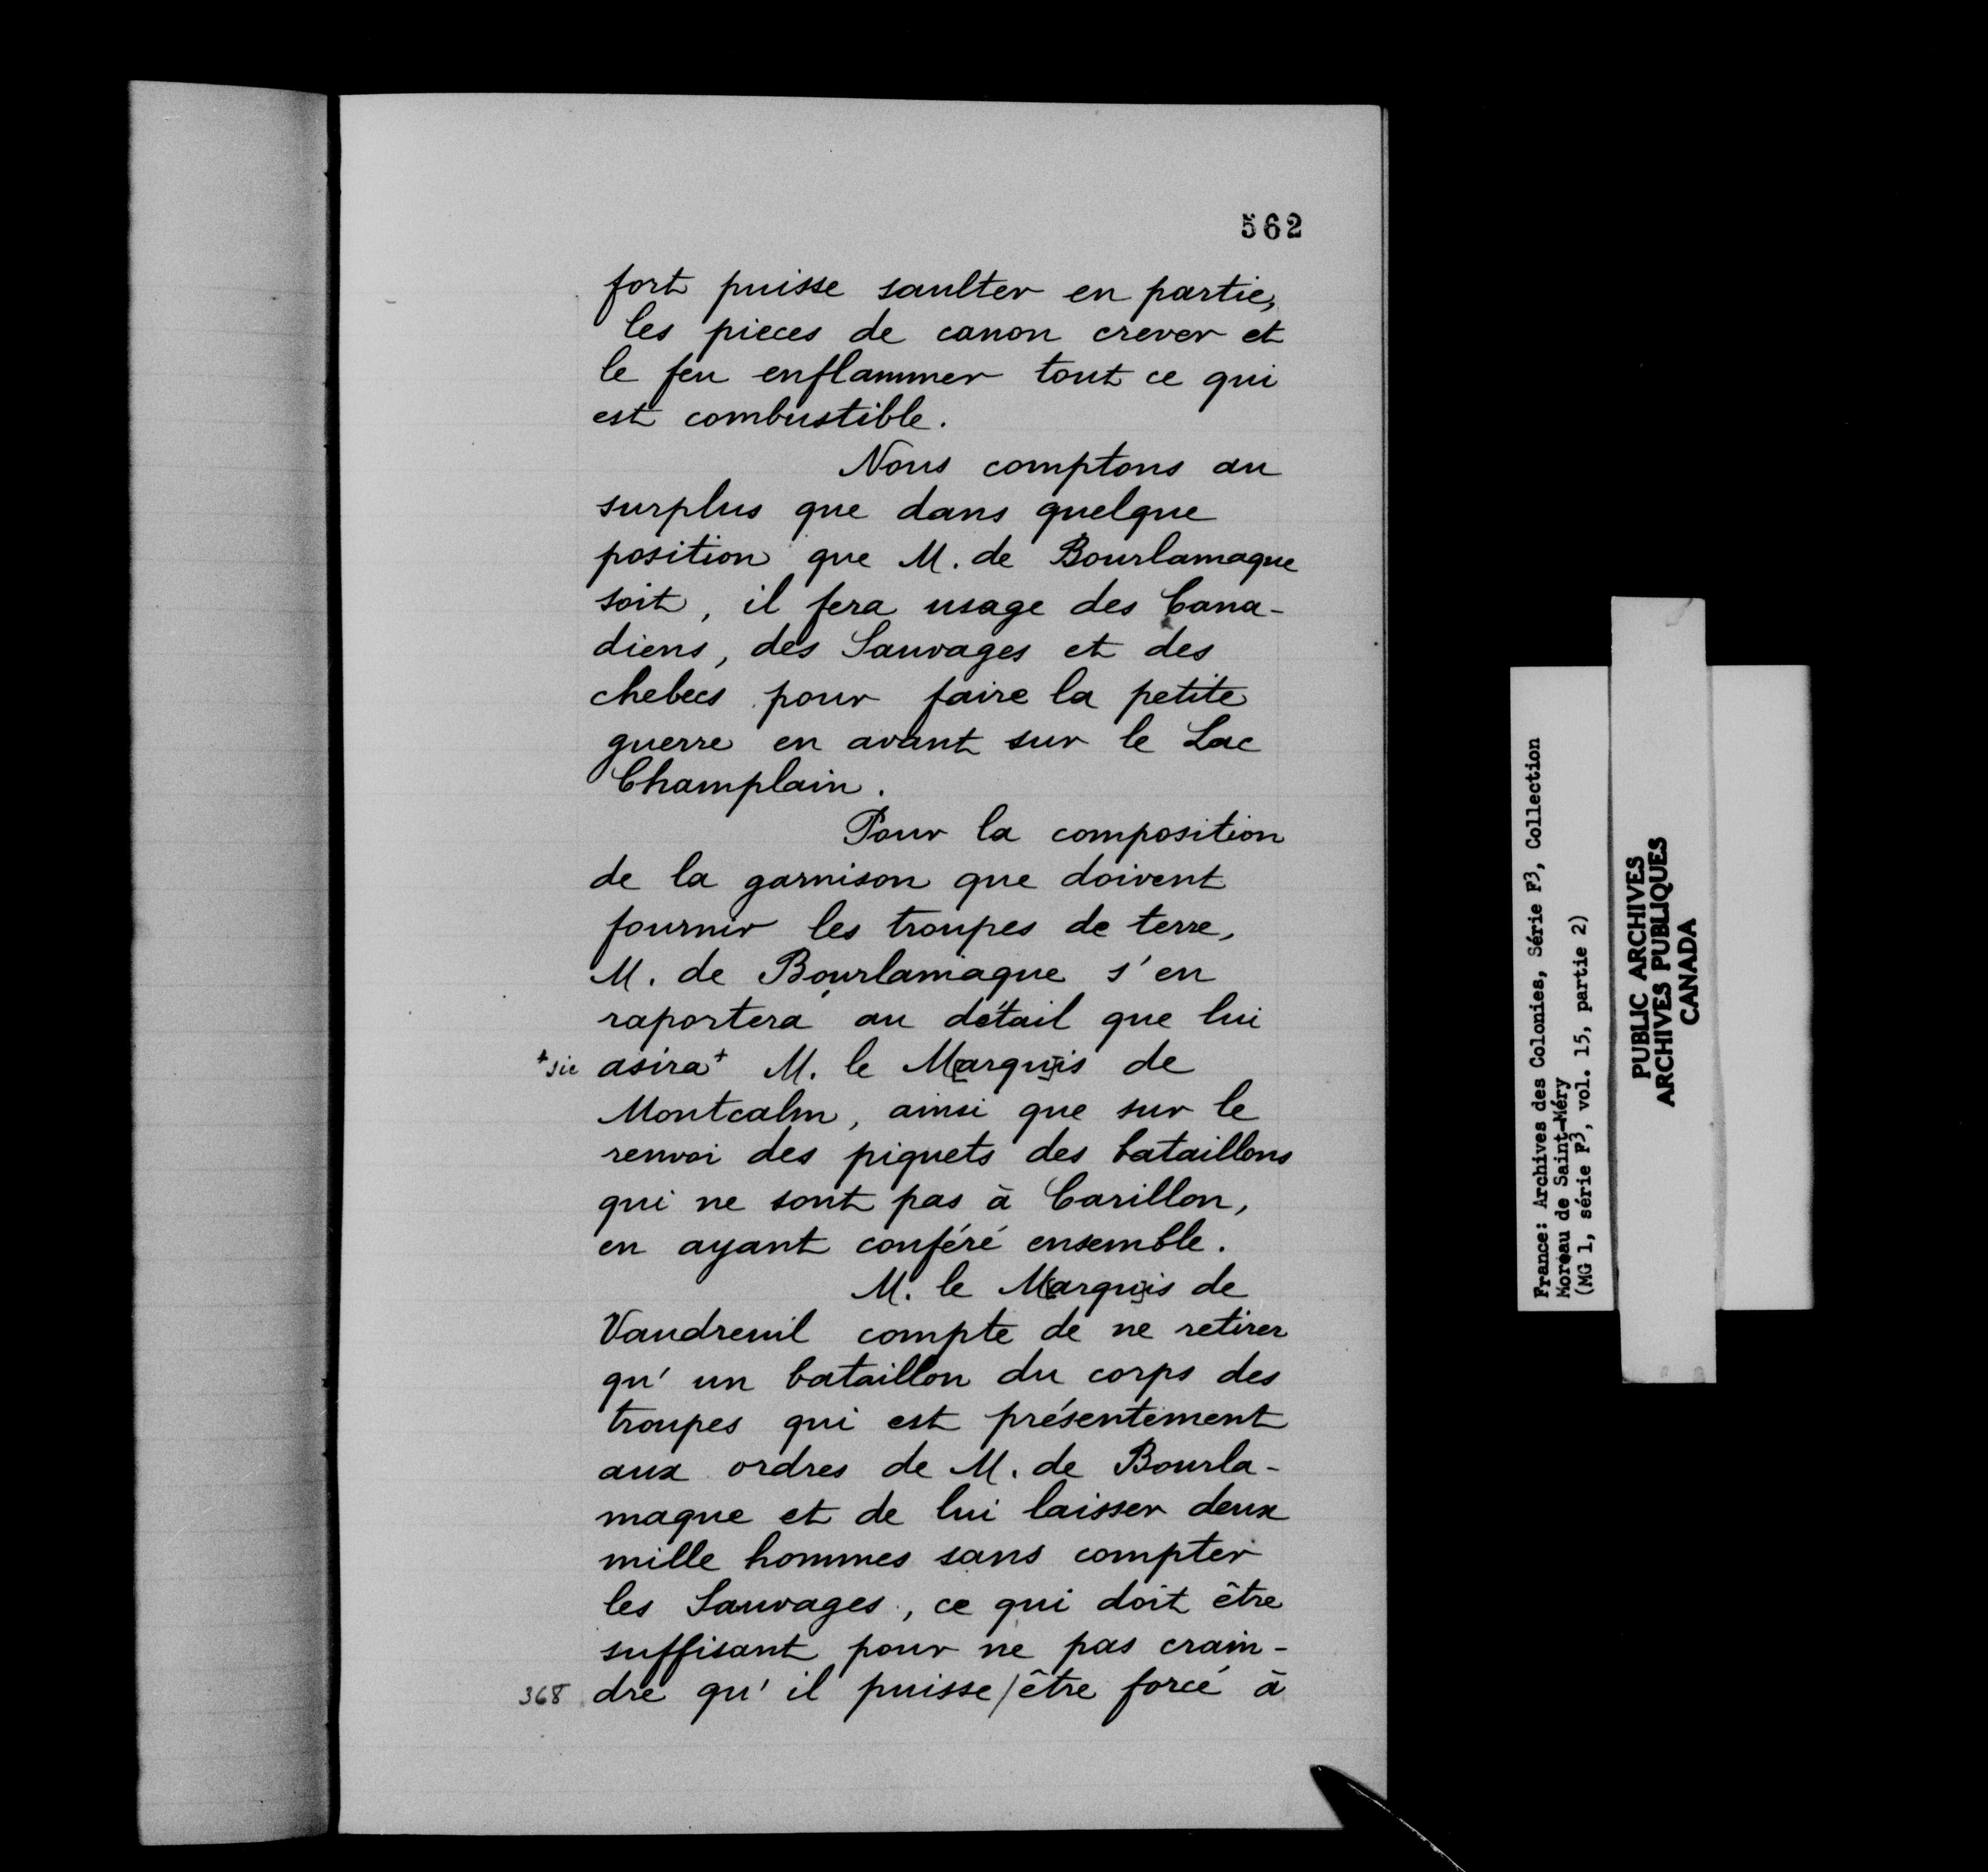 562
fort puisse saulter en partie,
les pieces de canon crever et
le feu enflammer tout ce qui
est combustible.
Nous comptons au
surplus que dans quelque
position que M. de Bourlamaque
soit, il fera usage des Cana-
diens, des Sauvages et des
chebecs pour faire la petite
guerre en avant sur le Lac
Champlain.
Pour la composition
de la garnison que doivent
fournir les troupes de terre,
M. de Bourlamaque s'en
raportera au détail que lui
+sic asira+ M. le M[arqu]is de
Montcalm, ainsi que sur le
renvoi des piquets des bataillons
qui ne sont pas à Carillon,
en ayant conféré ensemble.
M. le M[arqu]is de
Vaudreuil compte de ne retirer
qu'un bataillon du corps des
troupes qui est présentement
aux ordres de M. de Bourla-
maque et de lui laisser deux
mille hommes sans compter
les Sauvages, ce qui doit être
suffisant pour ne pas crain-
368 dre qu'il puisse/être forcé à
France: Archives des Colonies, Série F3, Collection
Moreau de Saint-Méry
(MG 1, série F3, vol. 15, partie 2)
PUBLIC ARCHIVES
ARCHIVES PUBLIQUES
CANADA